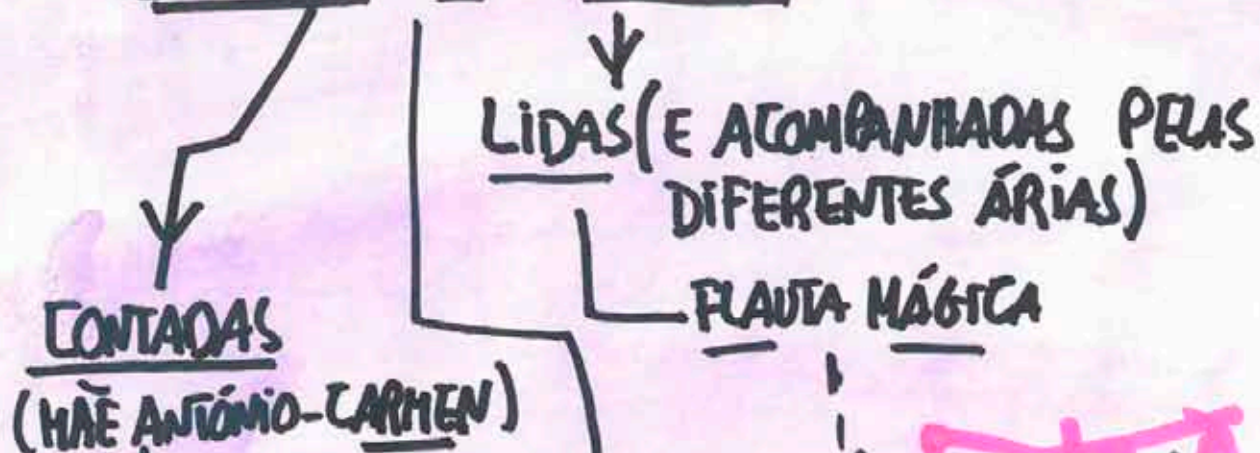 LIDAS (E ACOMPANHADAS PELAS
DIFERENTES ÁRIAS)
FLAUTA MÁGICA
CONTADAS
(MÃE ANTÓNIO-CARMEN)